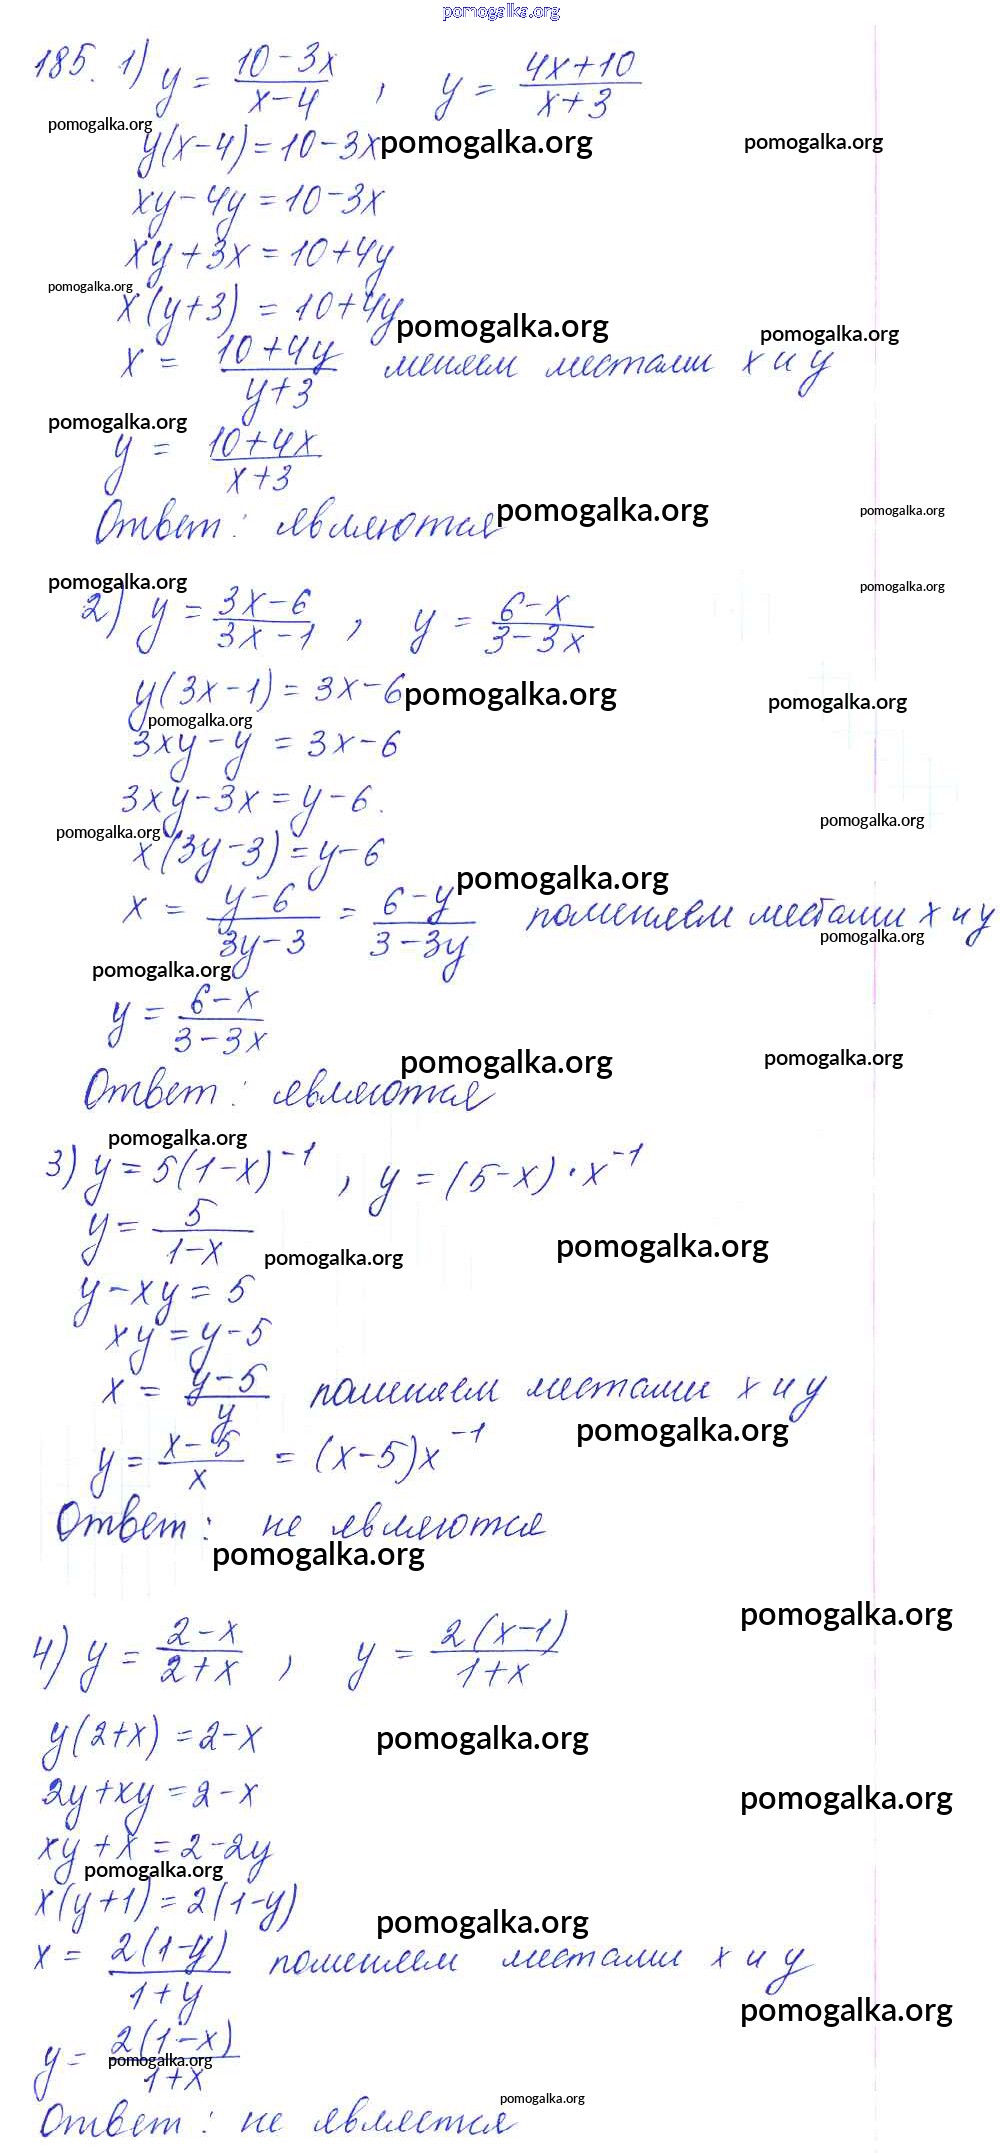 pomogalka.org
185. 1) y = (10 - 3x)/(x - 4) , y = (4x + 10)/(x + 3)
pomogalka.org
y(x - 4) = 10 - 3x pomogalka.org pomogalka.org
xy - 4y = 10 - 3x
xy + 3x = 10 + 4y
pomogalka.org
x(y + 3) = 10 + 4y
pomogalka.org pomogalka.org
x = (10 + 4y)/(y + 3) меняем местами x и y
pomogalka.org
y = (10 + 4x)/(x + 3)
Ответ: являются pomogalka.org pomogalka.org
pomogalka.org pomogalka.org
2) y = (3x - 6)/(3x - 1) , y = (6 - x)/(3 - 3x)
y(3x - 1) = 3x - 6 pomogalka.org pomogalka.org
pomogalka.org
3xy - y = 3x - 6
3xy - 3x = y - 6.
pomogalka.org pomogalka.org
x(3y - 3) = y - 6
pomogalka.org
x = (y - 6)/(3y - 3) = (6 - y)/(3 - 3y) поменяем местами x и y
pomogalka.org
pomogalka.org
y = (6 - x)/(3 - 3x)
pomogalka.org pomogalka.org
Ответ: являются
pomogalka.org
3) y = 5(1 - x)⁻¹ , y = (5 - x) · x⁻¹
y = 5/(1 - x)
pomogalka.org pomogalka.org
y - xy = 5
xy = y - 5
x = (y - 5)/y поменяем местами x и y
pomogalka.org
y = (x - 5)/x = (x - 5)x⁻¹
Ответ: не являются
pomogalka.org
pomogalka.org
4) y = (2 - x)/(2 + x) , y = 2(x - 1)/(1 + x)
y(2 + x) = 2 - x pomogalka.org
2y + xy = 2 - x pomogalka.org
xy + x = 2 - 2y
pomogalka.org
x(y + 1) = 2(1 - y) pomogalka.org
x = 2(1 - y)/(1 + y) поменяем местами x и y
pomogalka.org
y = 2(1 - x)/(1 + x)
pomogalka.org
pomogalka.org
Ответ: не является